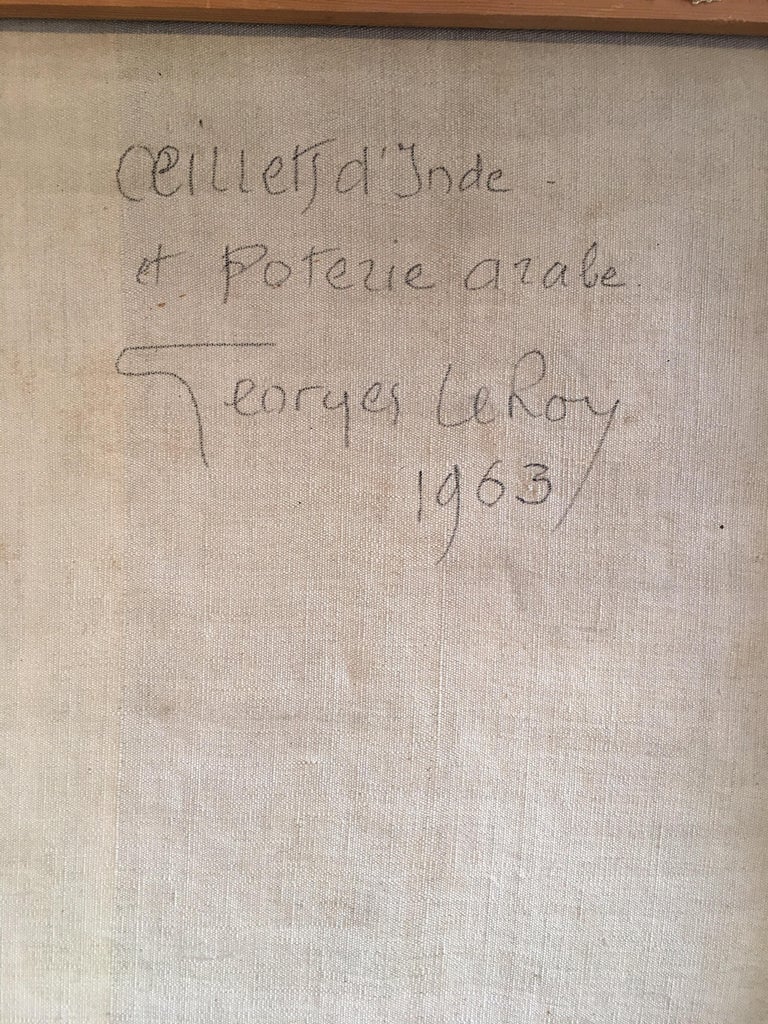 Œillets d'Inde -
et Poterie arabe.
Georges LeRoy
1963